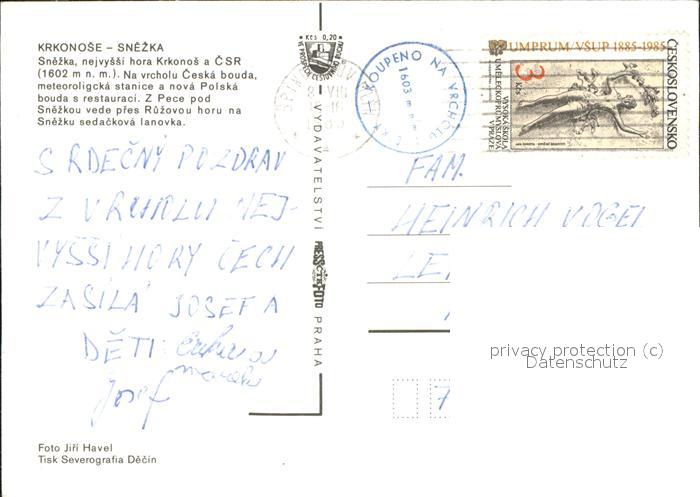 KRKONOŠE – SNĚŽKA
Sněžka, nejvyšší hora Krkonoš a ČSR
(1602 m n. m.) Na vrcholu Česká bouda,
meteoroligcká stanice a nová Polská
bouda s restaurací. Z Pece pod
Sněžkou vede přes Růžovou horu na
Sněžku sedačková lanovka.
SRDEČNÝ POZDRAV
Z VRCHOLU NEJ-
VYŠŠÍ HORY ČECH
ZASÍLÁ JOSEF A
DĚTI
Josef
Foto Jiří Havel
Tisk Severografia Děčín
Kčs 0,20
VYDAVATELSTVÍ PRESSFOTO PRAHA
ČTK
KOUPENO NA VRCHOLU
1603 m n. m.
UMPRUM/VŠUP 1885-1985
3 Kčs
VYSOKÁ ŠKOLA
UMĚLECKOPRŮMYSLOVÁ
V PRAZE
ČESKOSLOVENSKO
FAM.
HEINRICH VOGEL
LE
7
privacy protection (c)
Datenschutz